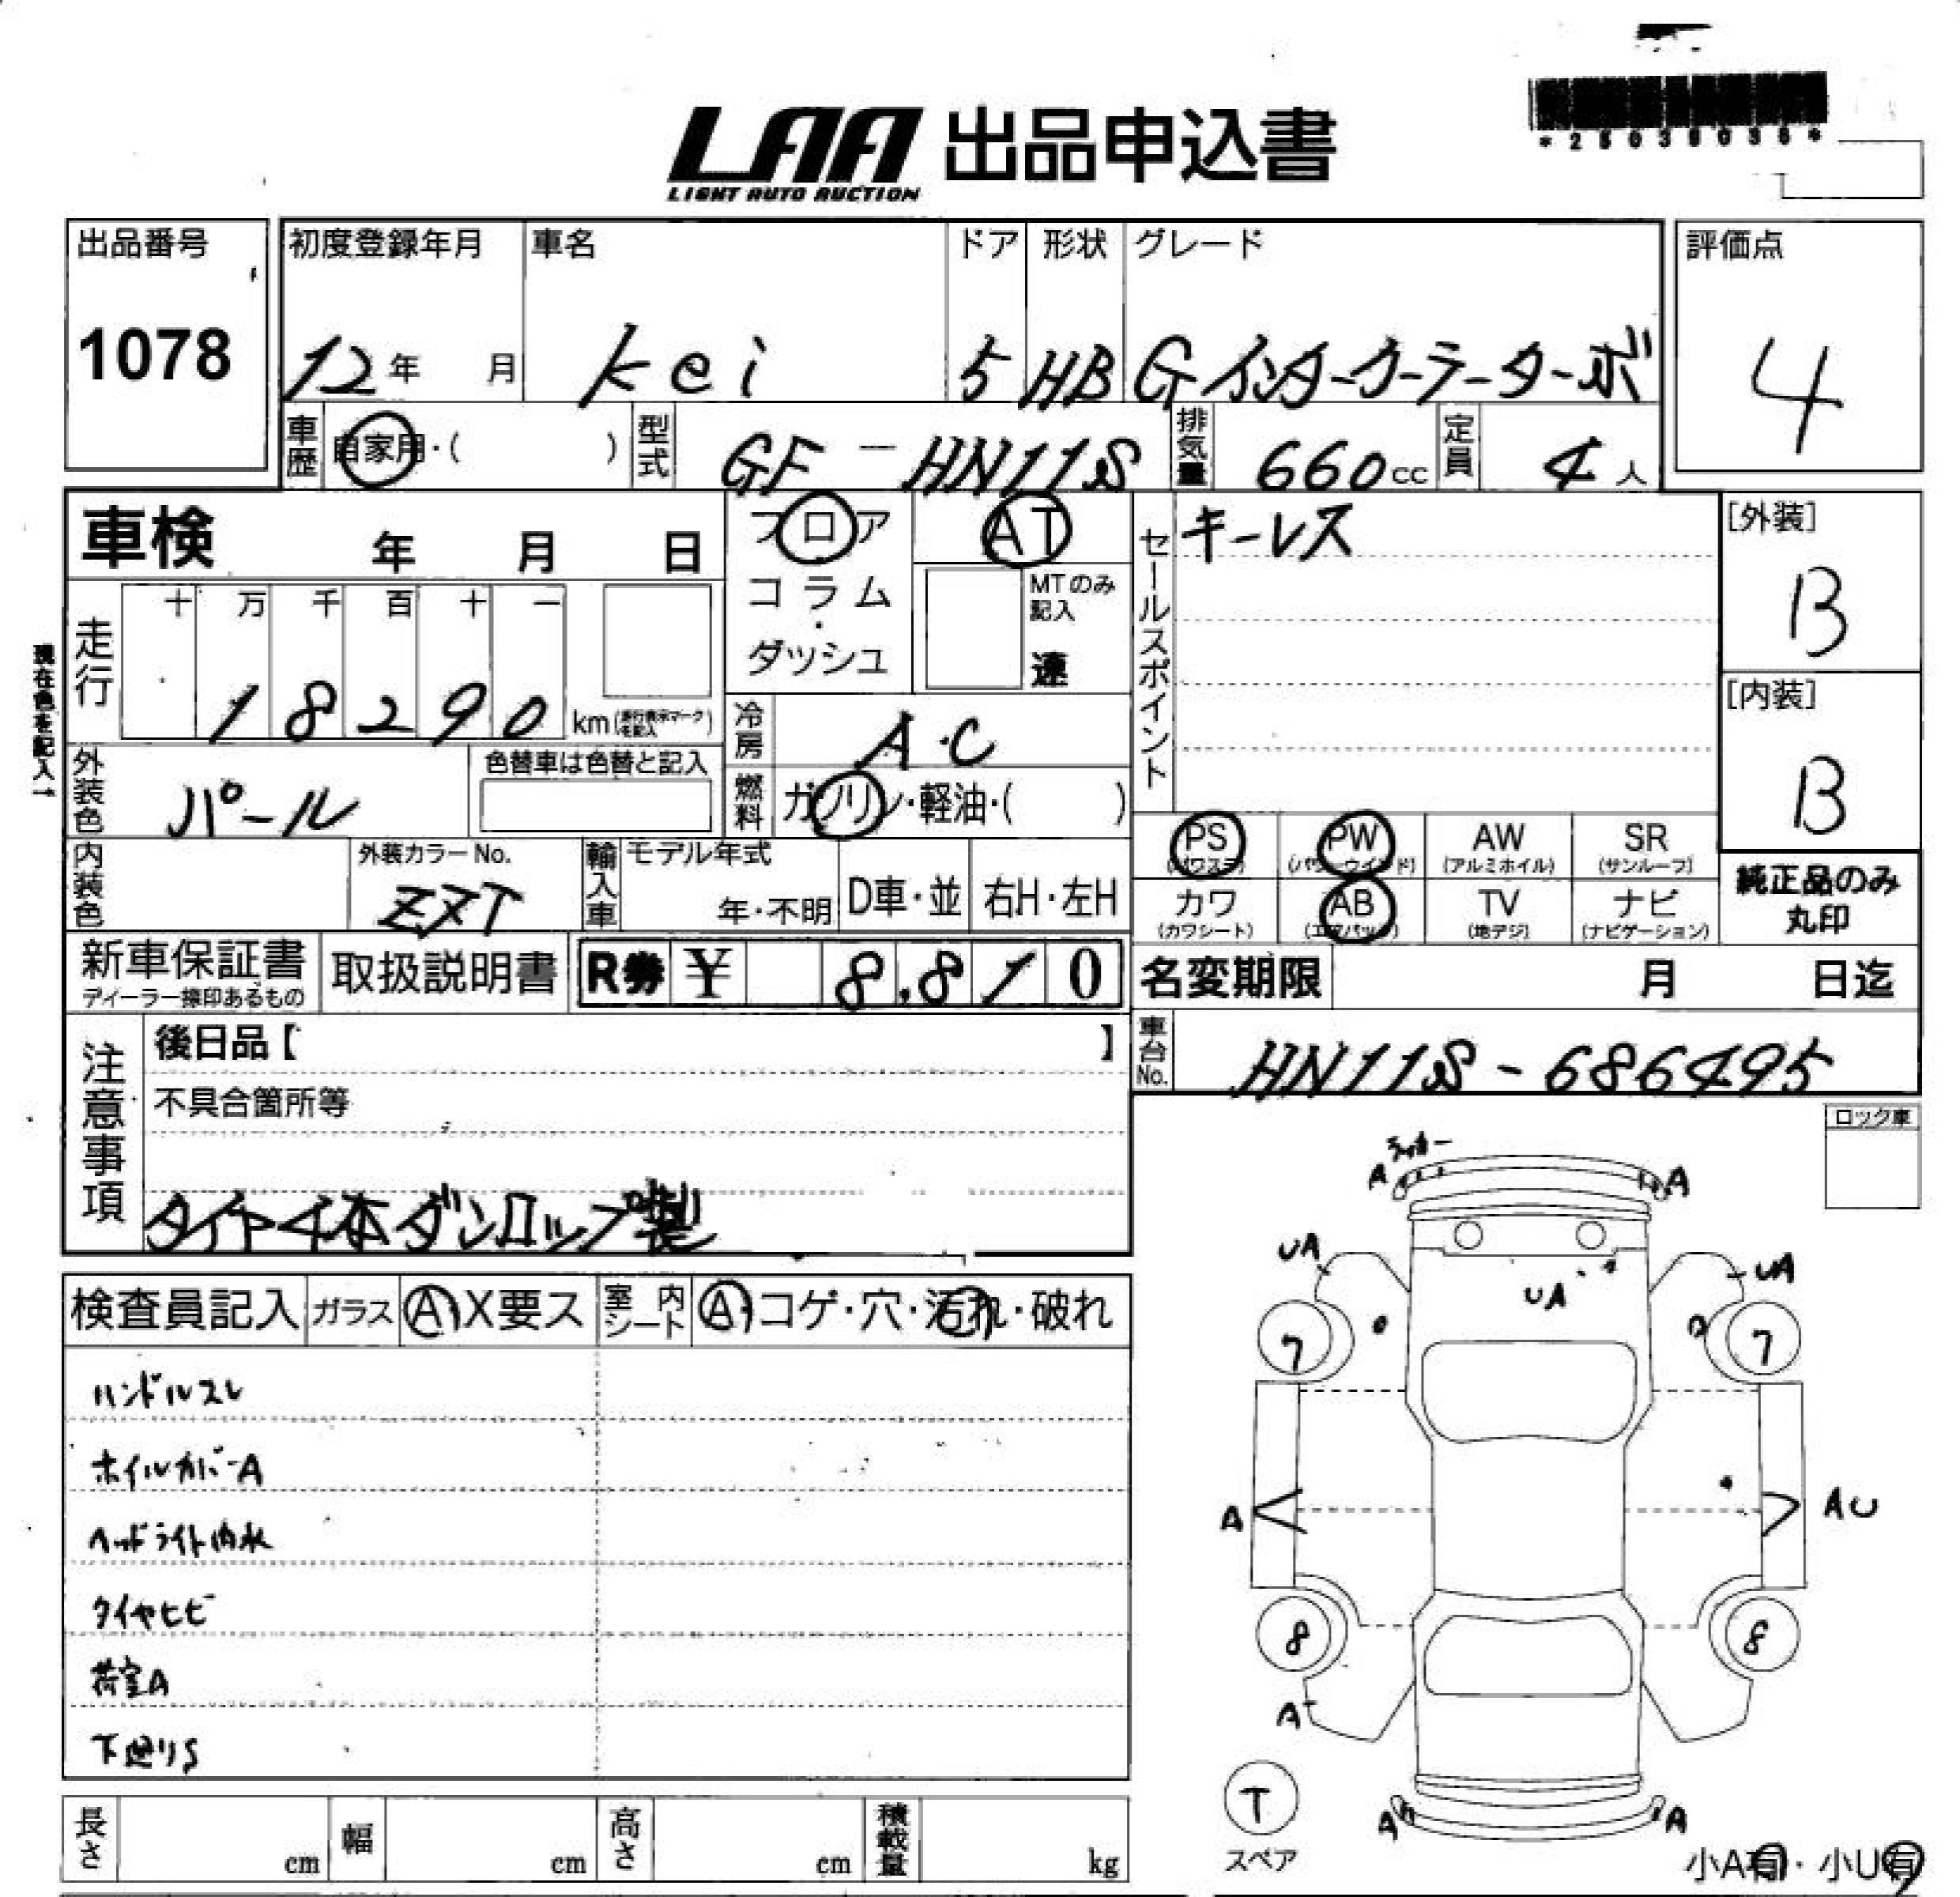 *25039036*
LAA 出品申込書
LIGHT AUTO AUCTION
出品番号 初度登録年月 車名 ドア 形状 グレード 評価点
1078 12年 月 Kei 5 HB Gインタークーラーターボ 4
車歴 自家用・( ) 型式 GF-HN11S 排気量 660cc 定員 4人
車検 年 月 日
フロア AT
コラム・ダッシュ
MTのみ記入 速
セールスポイント キーレス
[外装] B
[内装] B
走行 十 万 千 百 十 一
18290 km (走行表示マークを記入)
現在色を記入→
冷房 A・C
外装色 パール 色替車は色替と記入
燃料 ガソリン・軽油・( )
PS (パワステ) PW (パワーウインド) AW (アルミホイル) SR (サンルーフ)
内装色 外装カラーNo. Z7T 輸入車 モデル年式 年・不明 D車・並 右H・左H
カワ (カワシート) AB (エアバッグ) TV (地デジ) ナビ (ナビゲーション)
純正品のみ丸印
新車保証書 ディーラー捺印あるもの 取扱説明書 R券 ¥ 8,810
名変期限 月 日迄
注意事項 後日品【 】
車台No. HN11S-686495
不具合箇所等
タイヤ4本ダンロップ製
ロック車
検査員記入 ガラス A X要ス 室内シート A・コゲ・穴・汚れ・破れ
ハンドルスレ
ホイルカバーA
ヘッドライト内水
タイヤヒビ
荷室A
下廻りS
A A
UA UA UA
7 7
A AU
8 8
A
T
スペア
A A
小A有・小U有
長さ cm 幅 cm 高さ cm 積載量 kg